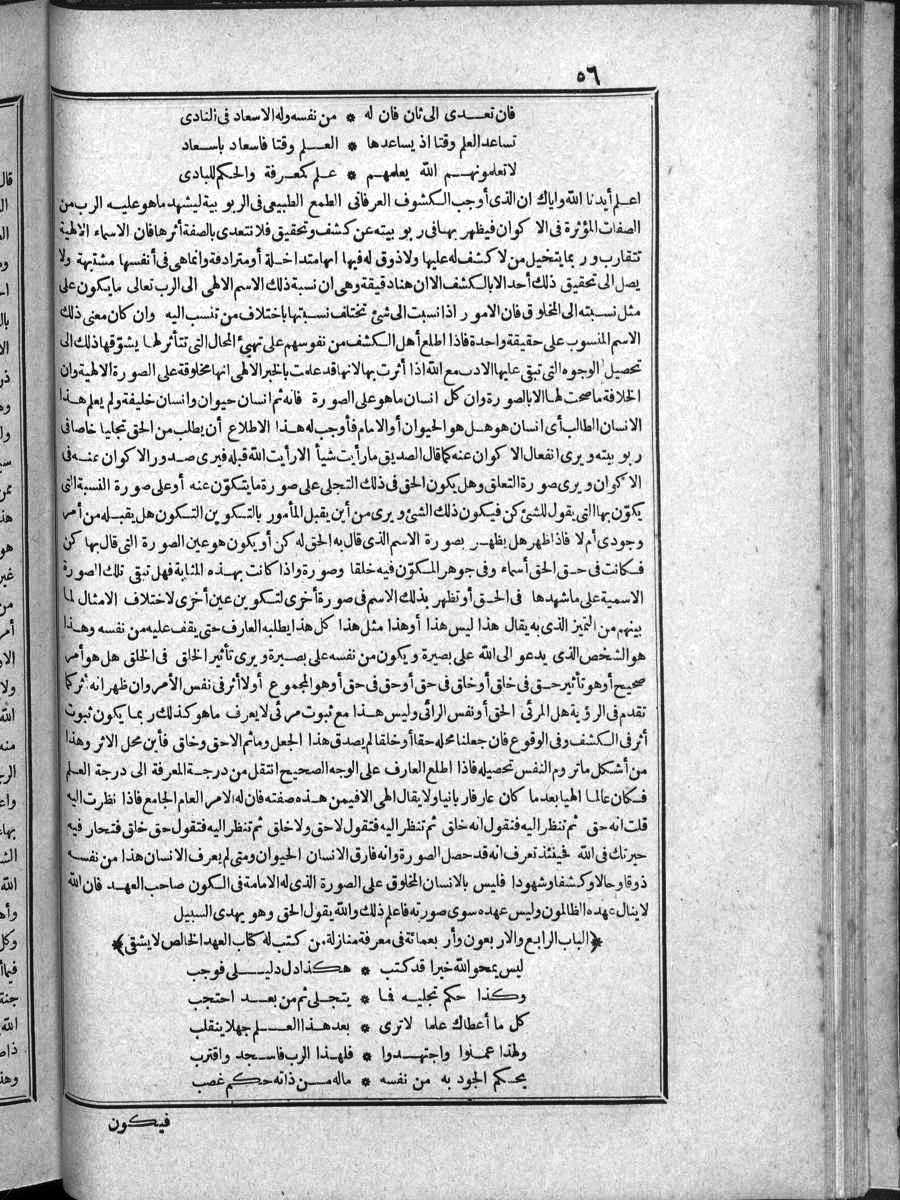 ٥٦
فان تعدى الى ثان فان له * من نفسه وله الاسعاد فى النادى
تساعد العلم وقتا اذ يساعدها * العلم وقتا فاسعاد باسعاد
لا تعلمونهم الله يعلمهم * علم كمعرفة والحكم للبادى
اعلم أيدنا الله واياك ان الذى أوجب الكشوف العرفانى الطمع الطبيعى فى الربوبية ليشهد ما هو عليه الرب من
الصفات المؤثرة فى الاكوان فيظهر بها فى ربوبيته عن كشف وتحقيق فلا تتعدى بالصفة أثرها فان الاسماء الالهية
تتقارب وربما يتخيل من لا كشف له عليها ولا ذوق له فيها انها متداخلة أو مترادفة وانما هى فى أنفسها مشتبهة ولا
يصل الى تحقيق ذلك أحد الا بالكشف الا ان هنا دقيقة وهى ان نسبة ذلك الاسم الالهى الى الرب تعالى ما يكون على
مثل نسبته الى المخلوق فان الامور اذا نسبت الى شئ تختلف نسبتها باختلاف من تنسب اليه وان كان معنى ذلك
الاسم المنسوب على حقيقة واحدة فاذا اطلع أهل الكشف من نفوسهم على تهيئ المحال التى تتأثر لها يشوّقها ذلك الى
تحصيل الوجوه التى تبقى عليها الادب مع الله اذا أثرت بها لانها قد علمت بالخبر الالهى انها مخلوقة على الصورة الالهية وان
الخلافة ما صحت لها الا بالصورة وان كل انسان ما هو على الصورة فانه ثم انسان حيوان وانسان خليفة ولم يعلم هذا
الانسان الطالب أى انسان هو هل هو الحيوان أو الامام فأوجب له هذا الاطلاع أن يطلب من الحق تجليا خاصا فى
ربوبيته ويرى انفعال الاكوان عنه كما قال الصديق ما رأيت شيأ الا رأيت الله قبله فيرى صدور الاكوان عنه فى
الاكوان ويرى صورة التعلق وهل يكون الحق فى ذلك التجلى على صورة ما يتكوّن عنه أو على صورة النسبة التى
يكوّن بها التى يقول للشئ كن فيكون ذلك الشئ ويرى من أين يقبل المأمور بالتكوين التكون هل يقبله من أمر
وجودى أم لا فاذا ظهر هل يظهر بصورة الاسم الذى قال به الحق له كن أو يكون هو عين الصورة التى قال بها كن
فكانت فى حق الحق أسماء وفى جوهر المكوّن فيه خلقا وصورة واذا كانت بهذه المثابة فهل تبقى تلك الصورة
الاسمية على ما شهدها فى الحق أو تظهر بذلك الاسم فى صورة أخرى لتكوين عين أخرى لاختلاف الامثال لما
بينهم من التميز الذى به يقال هذا ليس هذا أو هذا مثل هذا كل هذا يطلبه العارف حتى يقف عليه من نفسه وهذا
هو الشخص الذى يدعو الى الله على بصيرة ويكون من نفسه على بصيرة ويرى تأثير الخلق فى الخلق هل هو أمر
صحيح أو هو تأثير حق فى خلق أو خلق فى حق أو حق فى حق أو هو المجموع أو لا أثر فى نفس الأمر وان ظهر انه أثر كما
تقدم فى الرؤية هل المرئى الحق أو نفس الرائى وليس هذا مع ثبوت مرئى لا يعرف ما هو كذلك ربما يكون ثبوت
أثر فى الكشف وفى الوقوع فان جعلنا محله حقا أو خلقا لم يصدق هذا الجعل وما ثم الا حق وخلق فأين محل الاثر وهذا
من أشكل ما تروم النفس تحصيله فاذا اطلع العارف على الوجه الصحيح انتقل من درجة المعرفة الى درجة العلم
فكان عالما الهيا بعد ما كان عارفا ربانيا ولا يقال الهى الا فيمن هذه صفته فان له الامر العام الجامع فاذا نظرت اليه
قلت انه حق ثم تنظر اليه فتقول انه خلق ثم تنظر اليه فتقول لا حق ولا خلق ثم تنظر اليه فتقول حق خلق فتحار فيه
حيرتك فى الله فحينئذ تعرف انه قد حصل الصورة وانه فارق الانسان الحيوان ومتى لم يعرف الانسان هذا من نفسه
ذوقا وحالا وكشفا وشهودا فليس بالانسان المخلوق على الصورة الذى له الامامة فى الكون صاحب العهد فان الله
لا ينال عهده الظالمون وليس عهده سوى صورته فاعلم ذلك والله يقول الحق وهو يهدى السبيل
﴿الباب الرابع والاربعون وأربعمائة فى معرفة منازلة من كتب له كتاب العهد الخالص لا يشقى﴾
ليس يمحو الله خيرا قد كتب * هكذا دل دليلى فوجب
وكذا حكم تجليه فما * يتجلى ثم من بعد احتجب
كل ما أعطاك علما لا ترى * بعد هذا العلم جهلا ينقلب
ولهذا عملوا واجتهدوا * فلهذا الرب فاسجد واقترب
يحكم الجود به من نفسه * ماله من ذاته حكم غصب
فيكون